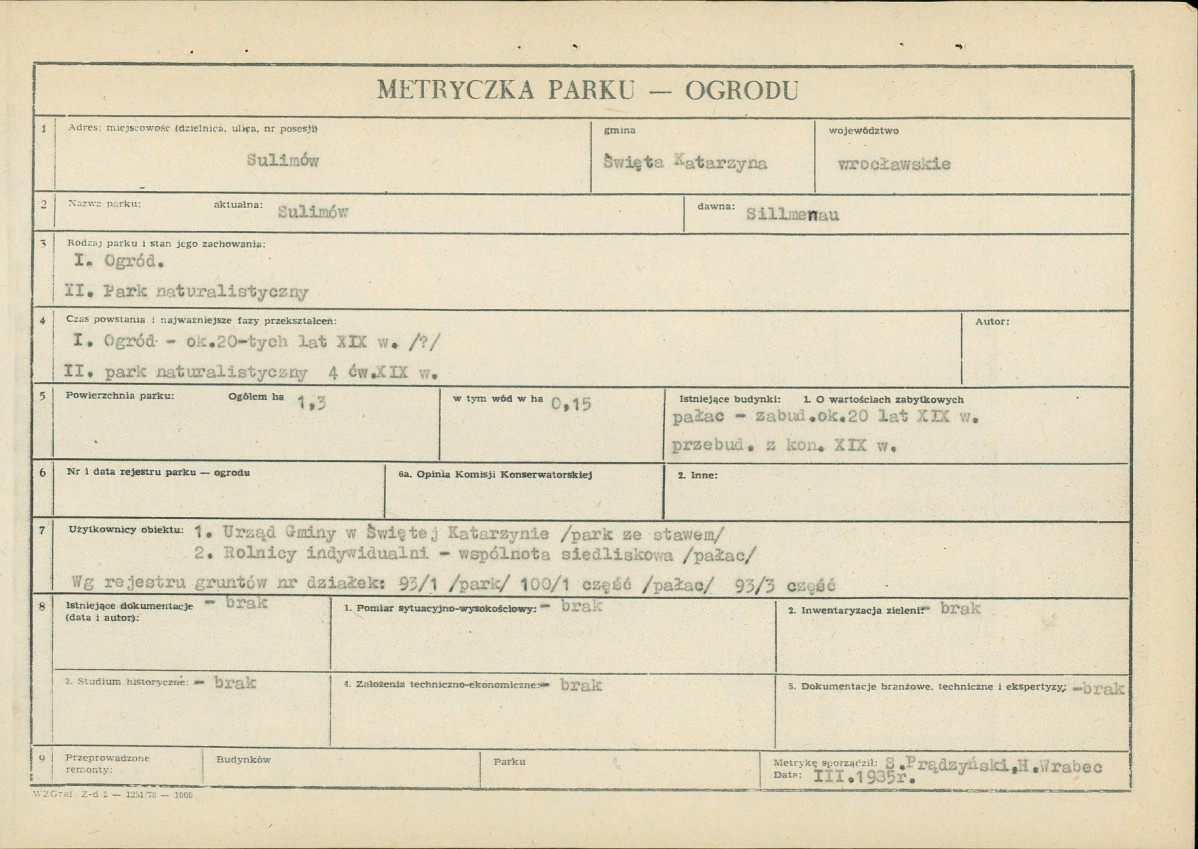 METRYCZKA PARKU — OGRODU
1 Adres: miejscowość (dzielnica, ulica, nr posesji) gmina województwo
Sulimów Święta Katarzyna wrocławskie
2 Nazwa parku: aktualna: Sulimów dawna: Sillmenau
3 Rodzaj parku i stan jego zachowania:
I. Ogród.
II. Park naturalistyczny
4 Czas powstania i najważniejsze fazy przekształceń: Autor:
I. Ogród - ok.20-tych lat XIX w. /?/
II. park naturalistyczny 4 ćw.XIX w.
5 Powierzchnia parku: Ogółem ha 1,3 w tym wód w ha 0,15 Istniejące budynki: 1. O wartościach zabytkowych
pałac - zabud.ok.20 lat XIX w.
przebud. z kon. XIX w.
6 Nr i data rejestru parku — ogrodu 6a. Opinia Komisji Konserwatorskiej 2. Inne:
7 Użytkownicy obiektu: 1. Urząd Gminy w Świętej Katarzynie /park ze stawem/
2. Rolnicy indywidualni - wspólnota siedliskowa /pałac/
Wg rejestru gruntów nr działek: 93/1 /park/ 100/1 część /pałac/ 93/3 część
8 Istniejące dokumentacje - brak 1. Pomiar sytuacyjno-wysokościowy: - brak 2. Inwentaryzacja zieleni: - brak
(data i autor):
3. Studium historyczne: - brak 4. Założenia techniczno-ekonomiczne: - brak 5. Dokumentacje branżowe, techniczne i ekspertyzy: -brak
9 Przeprowadzone Budynków Parku Metrykę sporządził: S.Prądzyński,H.Wrabec
remonty: Data: III.1985r.
WZGraf. Z-d 2 — 1251/78 — 1000